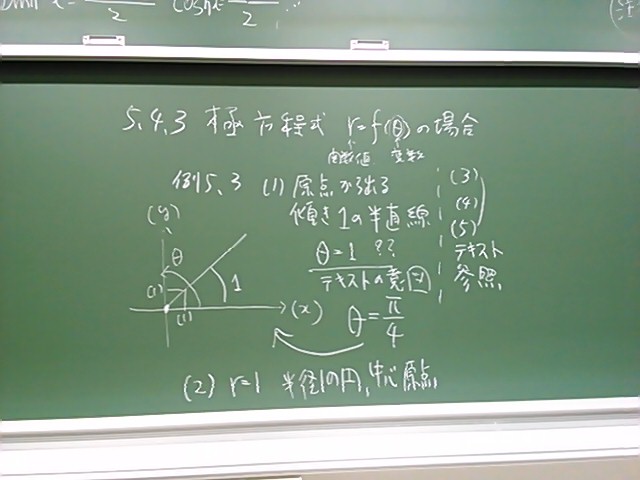 2 cosh t= 2
5.4.3 極方程式 r=f(θ)の場合
関数値 変数
例5.3 (1) 原点から出る
傾き1の半直線
θ=1 ??
テキストの意図
θ=π/4
(3)
(4)
(5)
テキスト
参照
(y)
θ
(1)
1
(1)
(x)
(2) r=1 半径1の円,中心原点